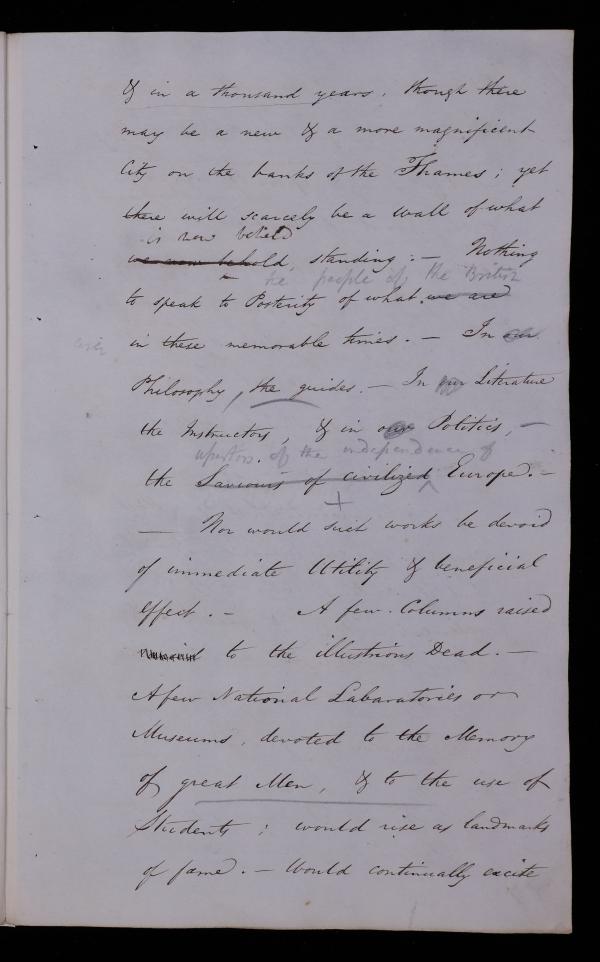 & in a thousand years, though there
may be a new & a more magnificent
City on the banks of the Thames; yet
there will scarcely be a wall of what
is now beheld
we now behold, standing. — Nothing
the people of the British
to speak to Posterity of what we are
in these memorable times. — In our
Philosophy, the guides. — In our Literature
the Instructors, & in our Politics, —
of the independence of
the Saviours of civilized Europe. —
+
— Nor would such works be devoid
of immediate Utility & beneficial
effect. — A few Columns raised
to the illustrious Dead. —
A few National Labaratories or
Museums, devoted to the Memory
of great Men, & to the use of
Students; would rise as landmarks
of fame. — Would continually excite